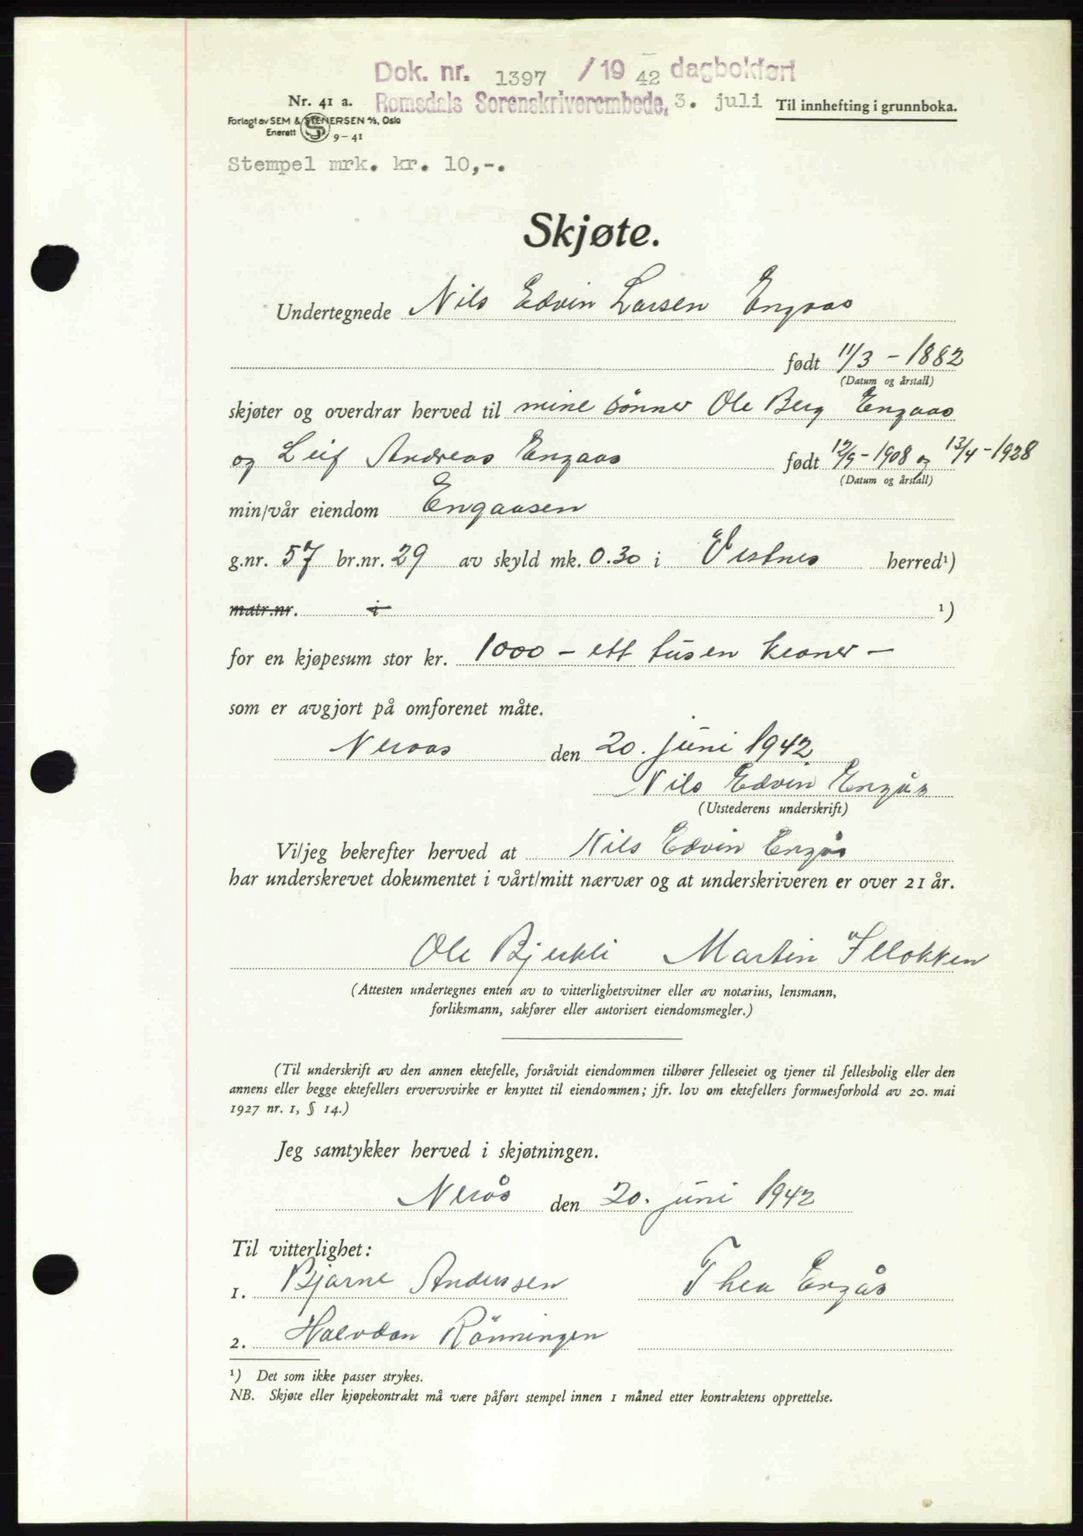 Dok. nr. 1397 / 19 42 dagbokført
Nr. 41 a. Romsdals Sorenskriverembede, 3. juli Til innhefting i grunnboka.
Forlagt av SEM & STENERSEN A/S, Oslo
Enerett 9-41
Stempel mrk. kr. 10,-.
Skjøte.
Undertegnede Nils Edvin Larsen Engaas
født 11/3 - 1882
(Datum og årstall)
skjøter og overdrar herved til mine sønner Ole Berg Engaas
og Leif Andreas Engaas født 12/9 - 1908 og 13/4 - 1928
(Datum og årstall)
min/vår eiendom Engaasen
g.nr. 57 br.nr. 29 av skyld mk. 0.30 i Vestnes herred¹)
matr.nr. i ¹)
for en kjøpesum stor kr. 1000 - ett tusen kroner -
som er avgjort på omforenet måte.
Neraas den 20. juni 1942
Nils Edvin Engås
(Utstederens underskrift)
Vi/jeg bekrefter herved at Nils Edvin Engås
har underskrevet dokumentet i vårt/mitt nærvær og at underskriveren er over 21 år.
Ole Bjerkli Martin
(Attesten undertegnes enten av to vitterlighetsvitner eller av notarius, lensmann,
forliksmann, sakfører eller autorisert eiendomsmegler.)
(Til underskrift av den annen ektefelle, forsåvidt eiendommen tilhører felleseiet og tjener til fellesbolig eller den
annens eller begge ektefellers ervervsvirke er knyttet til eiendommen; jfr. lov om ektefellers formuesforhold av 20. mai
1927 nr. 1, § 14.)
Jeg samtykker herved i skjøtningen.
Nerås den 20. juni 1942
Til vitterlighet:
1. Bjarne Anderssen Thea Engås
2. Halvdan Rönningen
¹) Det som ikke passer strykes.
NB. Skjøte eller kjøpekontrakt må være påført stempel innen 1 måned etter kontraktens opprettelse.